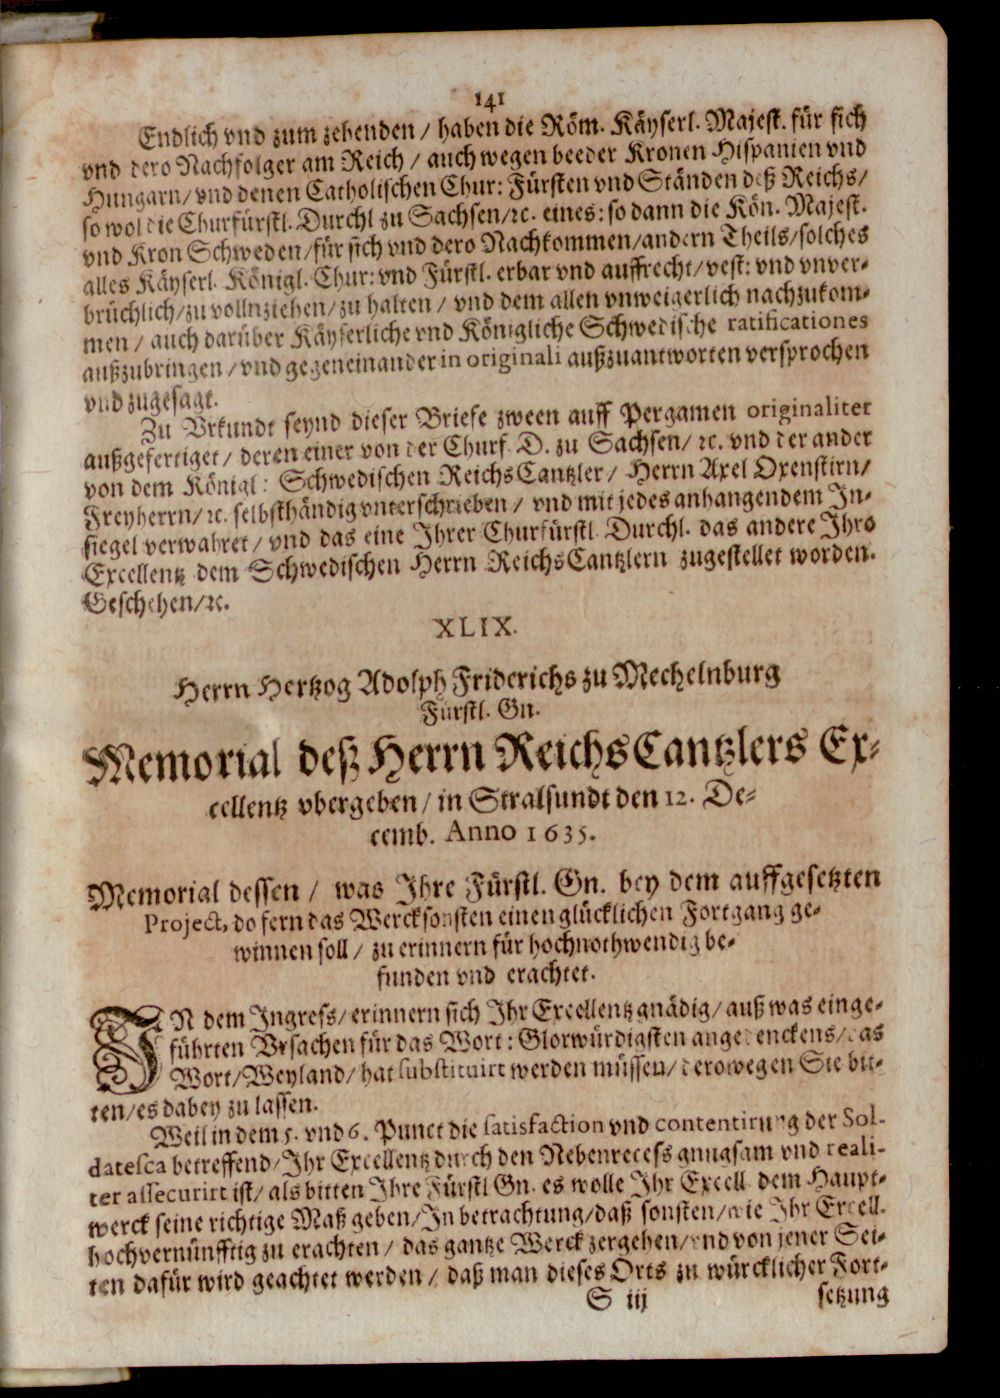 141
Endlich vnd zum zehenden / haben die Röm. Käyserl. Majest. für sich
vnd dero Nachfolger am Reich / auch wegen beeder Kronen Hispanien vnd
Hungarn / vnd denen Catholischen Chur: Fürsten vnd Ständen deß Reichs /
so wol die Churfürstl. Durchl zu Sachsen / ꝛc. eines: so dann die Kön. Majest.
vnd Kron Schweden / für sich vnd dero Nachkommen / andern Theils / solches
alles Käyserl. Königl. Chur: vnd Fürstl. erbar vnd auffrecht / vest: vnd vnver-
brüchlich / zu vollnziehen / zu halten / vnd dem allen vnweigerlich nachzukom-
men / auch darüber Käyserliche vnd Königliche Schwedische ratificationes
außzubringen / vnd gegeneinander in originali außzuantworten versprochen
vnd zugesagt.
Zu Vrkundt seynd dieser Briefe zween auff Pergamen originaliter
außgefertiget / deren einer von der Churf. D. zu Sachsen / ꝛc. vnd der ander
von dem Königl: Schwedischen ReichsCantzler / Herrn Axel Oxenstirn /
Freyherrn / ꝛc. selbsthändig vnterschrieben / vnd mit jedes anhangendem In-
siegel verwahret / vnd das eine Ihrer Churfürstl. Durchl. das andere Ihro
Excellentz dem Schwedischen Herrn ReichsCantzlern zugestellet worden.
Geschehen / ꝛc.
XLIX.
Herrn Hertzog Adolph Friderichs zu Mechelnburg
Fürstl. Gn.
Memorial deß Herrn ReichsCantzlers Ex-
cellentz vbergeben / in Stralsundt den 12. De-
cemb. Anno 1635.
Memorial dessen / was Ihre Fürstl. Gn. bey dem auffgesetzten
Project, do fern das Werck sonsten einen glücklichen Fortgang ge-
winnen soll / zu erinnern für hochnothwendig be-
funden vnd erachtet.
IN dem Ingress / erinnern sich Ihr Excellentz gnädig / auß was einge-
führten Vrsachen für das Wort: Glorwürdigsten angedenckens / das
Wort / Weyland / hat substituirt werden müssen / derowegen Sie bit-
ten / es dabey zu lassen.
Weil in dem 5. vnd 6. Punct die satisfaction vnd contentirung der Sol-
datesca betreffend / Ihr Excellentz durch den Nebenrecess gnugsam vnd reali-
ter assecurirt ist / als bitten Ihre Fürstl Gn. es wolle Ihr Excell. dem Haupt-
werck seine richtige Maß geben / In betrachtung / daß sonsten / wie Ihr Excell.
hochvernünfftig zu erachten / das gantze Werck zergehen / vnd von jener Sei-
ten dafür wird geachtet werden / daß man dieses Orts zu würcklicher Fort-
S iij setzung